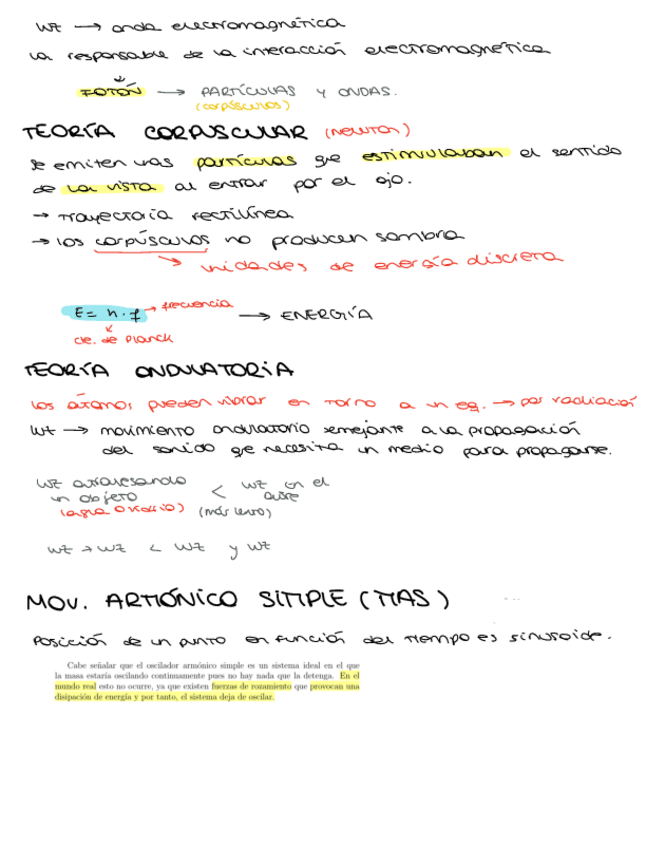 wz → onda electromagnética
la responsable de la interacción electromagnética
FOTÓN → PARTÍCULAS y ONDAS.
(corpúsculos)
TEORÍA CORPUSCULAR (NEWTON)
se emiten uas partículas qe estimulaban el sentido
de la vista al entrar por el ojo.
→ trayectoria rectilínea
→ los corpúsculos no producen sombra
unidades de energía discreta
E = h · f → frecuencia → ENERGÍA
cte. de Planck
TEORÍA ONDULATORIA
los átomos pueden vibrar en torno a un eq. → por radiación
wz → movimiento ondulatorio semejante a la propagación
del sonido qe necesita un medio para propagarse.
wz atravesando < wz en el
un objeto aire
(agua o vidrio) (más lento)
wz → wz < wz y wz
MOV. ARMÓNICO SIMPLE (MAS)
Posición de un punto en función del tiempo es sinusoide.
Cabe señalar que el oscilador armónico simple es un sistema ideal en el que
la masa estaría oscilando continuamente pues no hay nada que la detenga. En el
mundo real esto no ocurre, ya que existen fuerzas de rozamiento que provocan una
disipación de energía y por tanto, el sistema deja de oscilar.